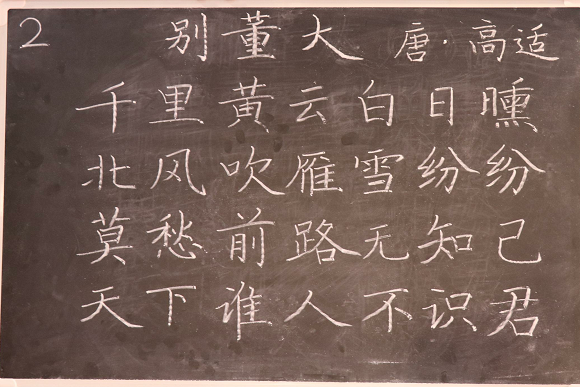 2 别董大 唐·高适
千里黄云白日曛
北风吹雁雪纷纷
莫愁前路无知己
天下谁人不识君